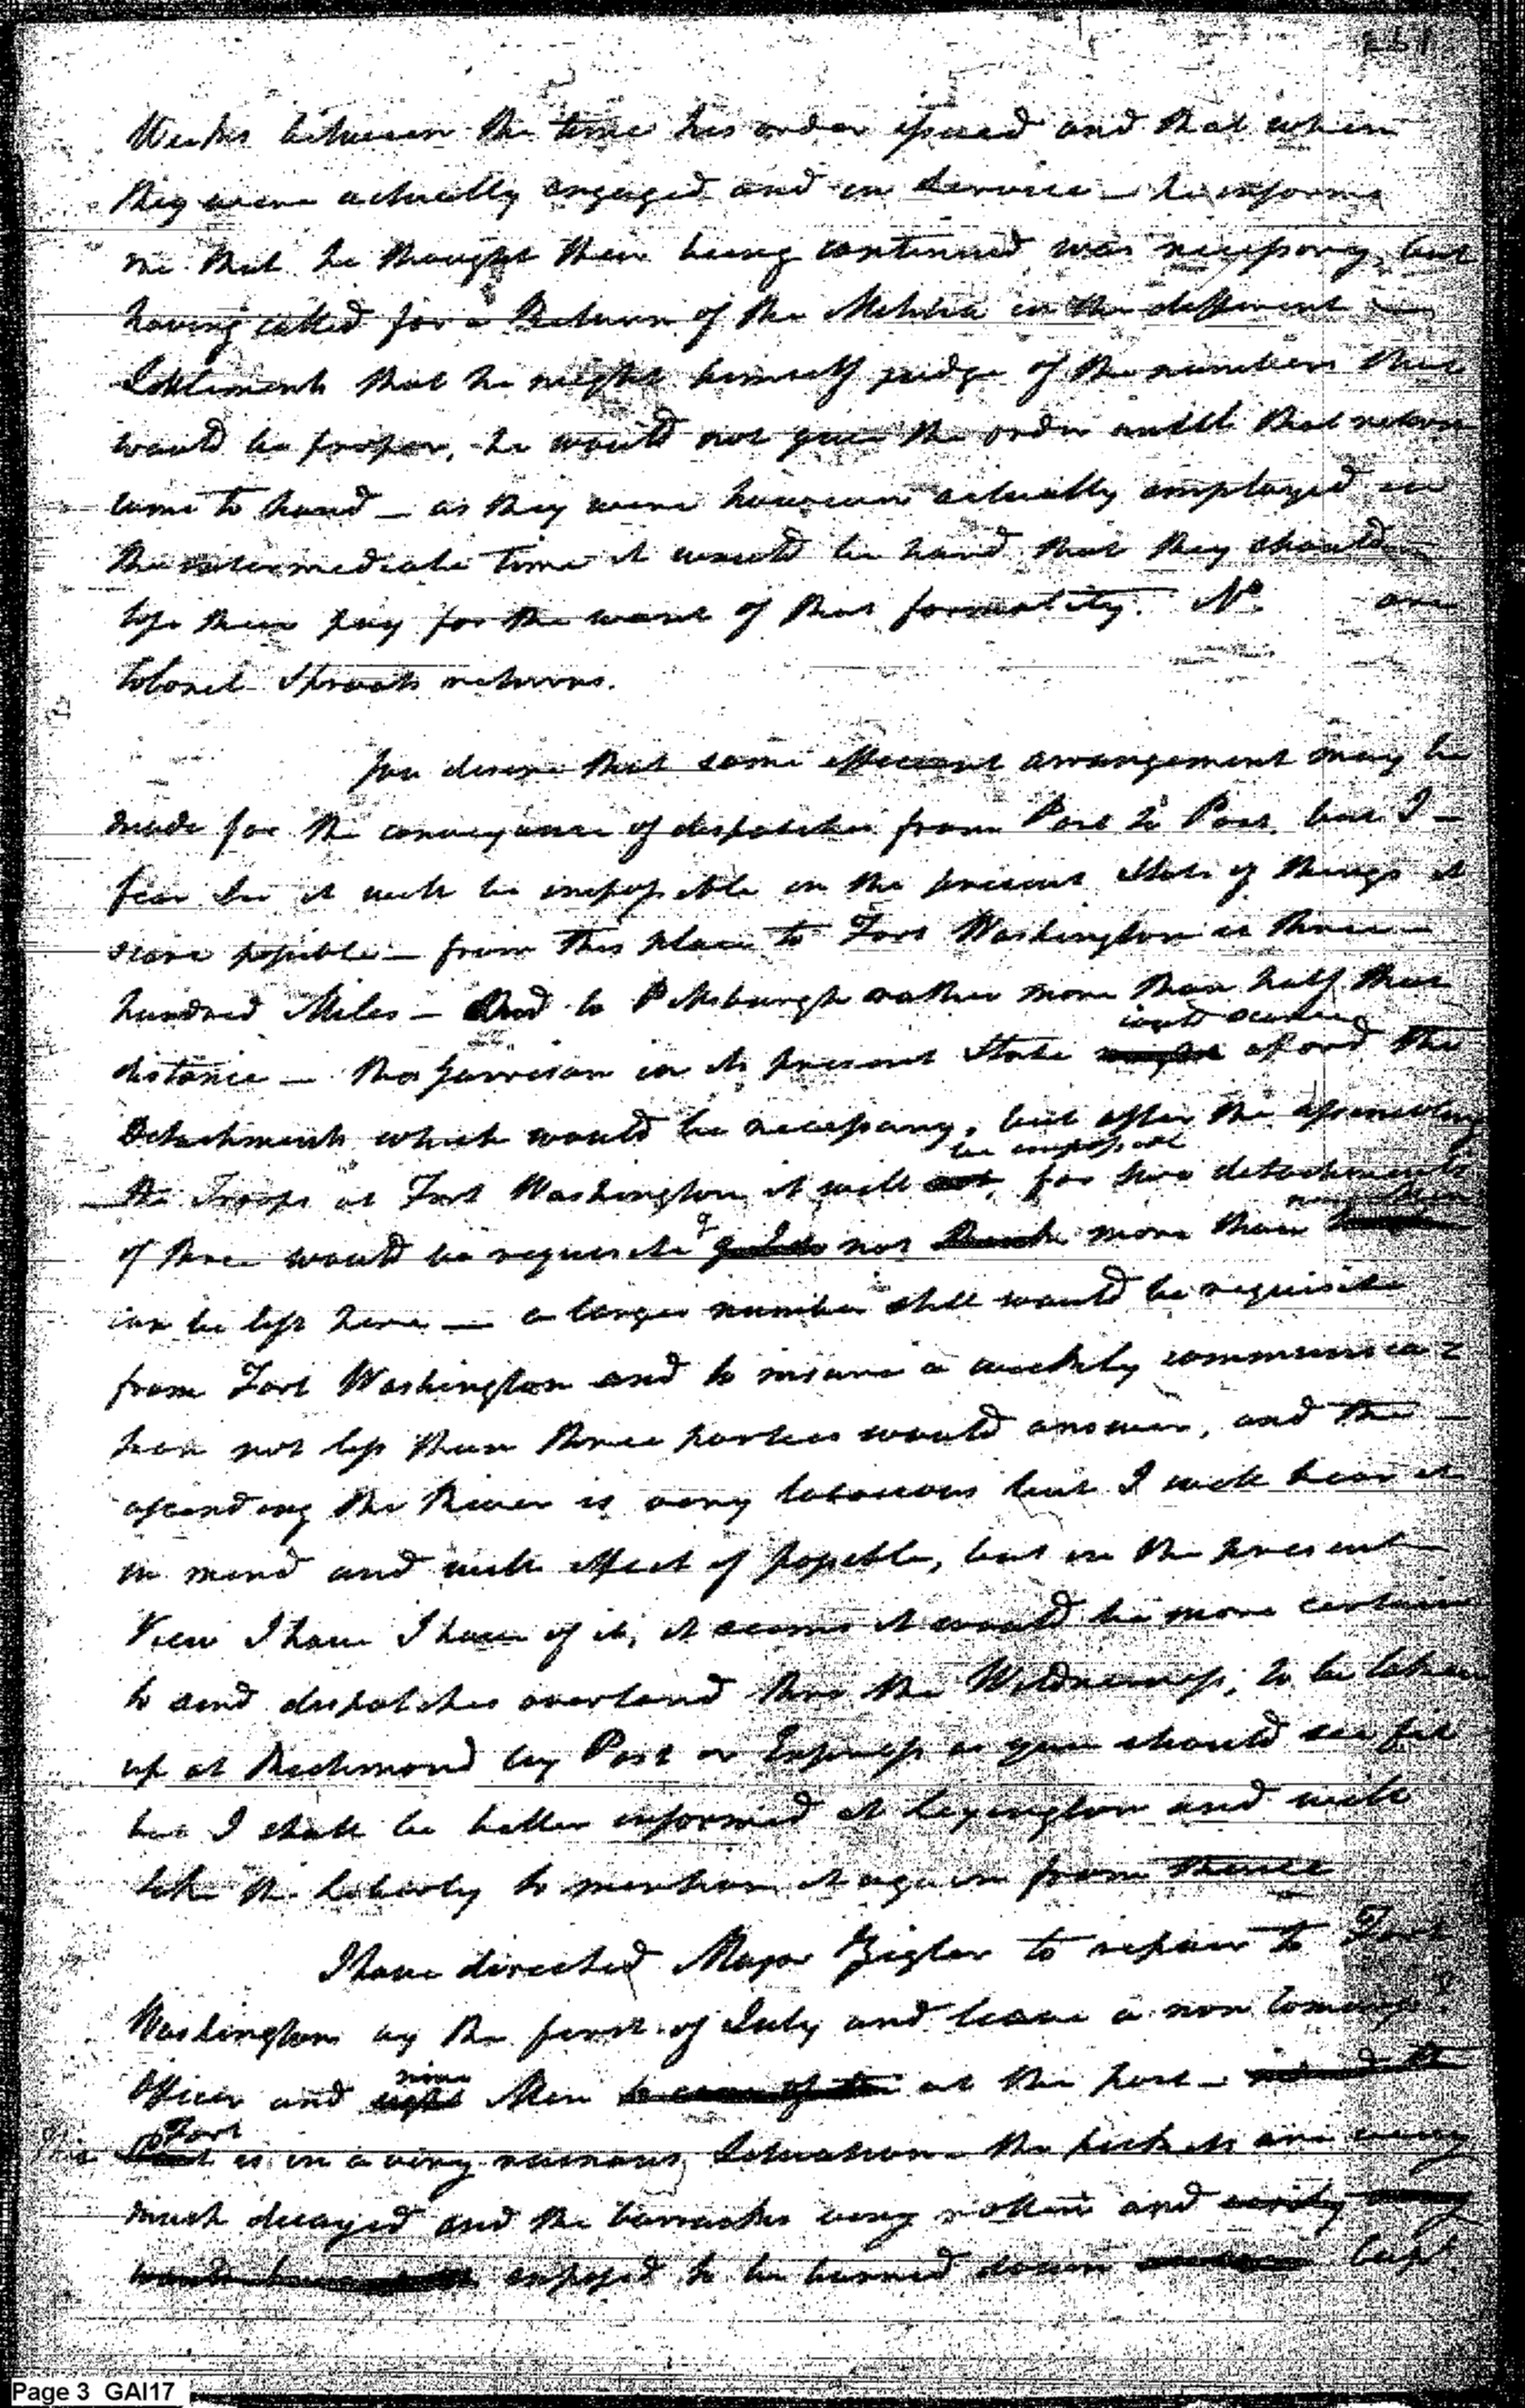 261
Weeks between the time his order issued and that when
they were actually engaged and in Service – he informs
me that he thought their being continued was necessary, but
having called for a Return of the Militia in the different
Settlements that he might himself judge of the numbers that
would be proper, he would not give the order untill that return
came to hand – as they were however actually employed in
the intermediate time it would be hard that they should
lose their pay for the want of that formality. No. are
Colonel Sproats returns.
You desire that some efficient arrangement may be
made for the conveyance of dispatches from Post to Post, but I –
fear Sir it will be impossible in the present State of things it
scarce possible – from this place to Fort Washington is three –
hundred Miles – And to Pittsburgh rather more than half that
could scarcely
distance – the garrison in its present State might afford the
Detachments which would be necessary, but after the assembling
be impossible
the Troops at Fort Washington it will not, for two detachments
more than
of three would be requisite & not more than
can be left here – a larger number still would be requisite
from Fort Washington and to insure a weekly communica=
tion not less than three parties would answer, and the –
ascending the River is very laborious but I will bear it
in mind and will effect if possible, but in the present
View I have I have of it, it seems it would be more certain
to send dispatches overland thro the Wilderness, to be taken
up at Richmond by Post or Express as you should see fit
but I shall be better informed at Lexington and will
take the liberty to mention it again from thence
I have directed Major Zigler to repair to Fort
Washington by the first of July and leave a non Commissd
nine
Officer and eight Men at this post –
Fort
This is in a very ruinous Situation – the pickets are every
much decayed and the barracks very rotten and
exposed to be burned down Capt
Page 3 GAI17